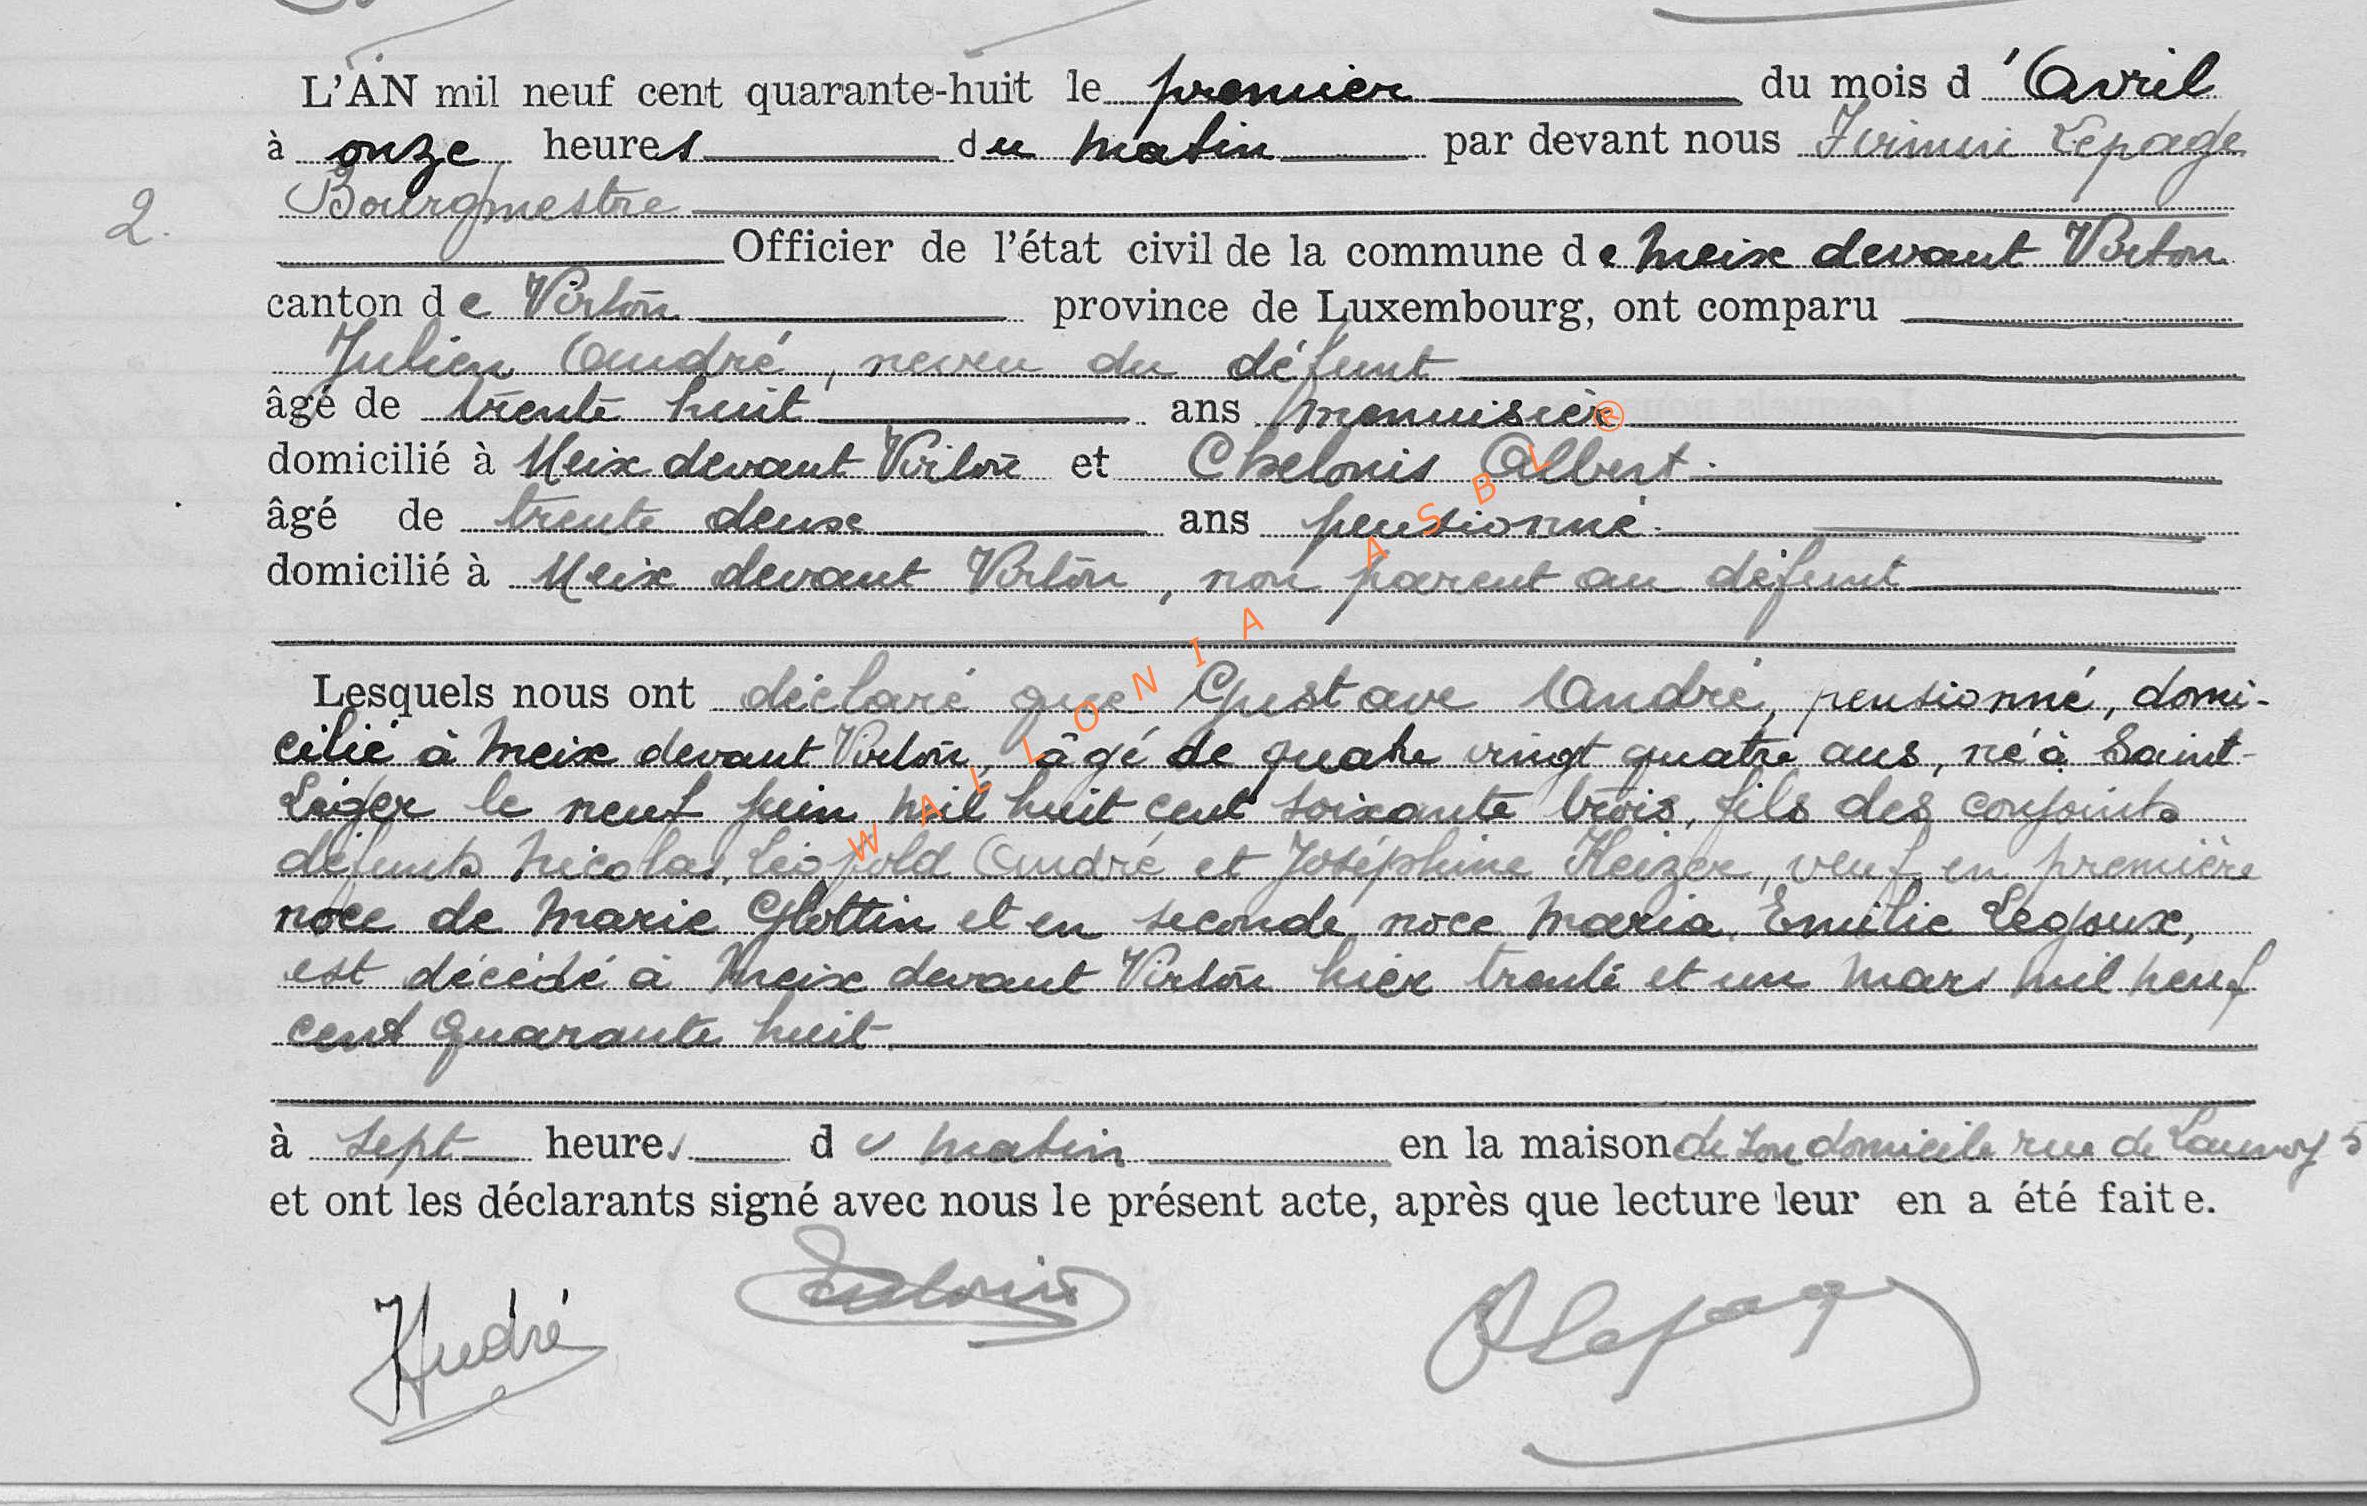 L'AN mil neuf cent quarante-huit le premier du mois d'Avril
à onze heures du matin par devant nous Firmin Lepage
Bourgmestre
2.
Officier de l'état civil de la commune de Meix devant Virton
canton de Virton province de Luxembourg, ont comparu
Julien André, neveu du défunt
âgé de trente huit ans menuisier
domicilié à Meix devant Virton et Chelonis Albert
âgé de trente deux ans pensionné
domicilié à Meix devant Virton, non parent au défunt
Lesquels nous ont déclaré que Gustave André, pensionné, domi-
cilié à Meix devant Virton, âgé de quatre vingt quatre ans, né à Saint-
Léger le neuf juin mil huit cent soixante trois, fils des conjoints
défunts Nicolas, Léopold André et Joséphine Keizer, veuf en première
noce de Marie Glottin et en seconde noce Maria Emilie Legoux,
est décédé à Meix devant Virton hier trente et un mars mil neuf
cent quarante huit
à sept heures du matin en la maison de son domicile rue de Launoy 5
et ont les déclarants signé avec nous le présent acte, après que lecture leur en a été faite.
André
Lepage
WALLONIA ASBL ®